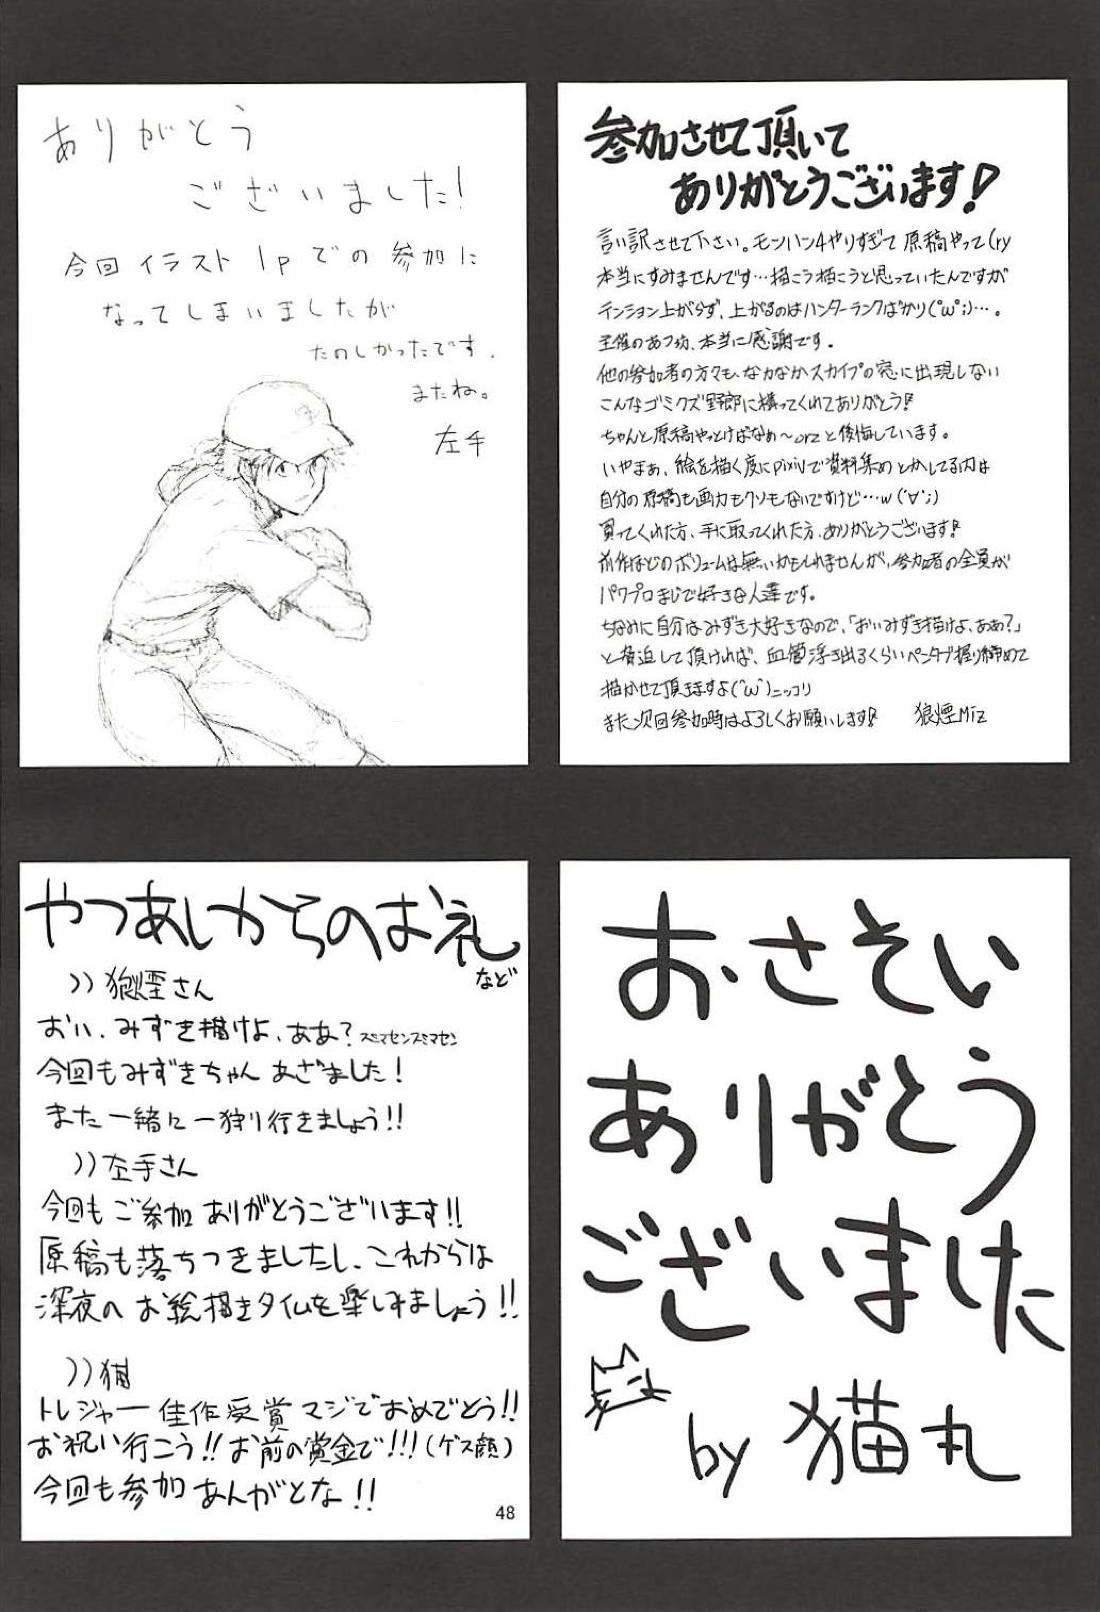 参加させて頂いて
ありがとうございます!
言い訳させて下さい。モンハン4やりすぎて原稿やって(ry
本当にすみませんです…描こう描こうと思っていたんですが
テンション上がらず、上がるのはハンターランクばかり(´ω`;)…。
主催のあつ坊、本当に感謝です。
他の参加者の方々も、なかなかスカイプの窓に出現しない
こんなゴミクズ野郎に構ってくれてありがとう!
ちゃんと原稿やっとけばなぁ～orzと後悔しています。
いやまぁ、絵を描く度にpixivで資料集めとかしてる内は
自分の原稿も画力もクソもないですけど…w(´∀`;)
買ってくれた方、手に取ってくれた方、ありがとうございます!
前作ほどのボリュームは無いかもしれませんが、参加者の全員が
パワプロまじで好きな人達です。
ちなみに自分はみずき大好きなので、「おいみずき描けよ、ああ?」
と脅迫して頂ければ、血管浮き出るくらいペンタブ握り締めて
描かせて頂きますよ(´ω`)ニッコリ
また次回参加時はよろしくお願いします! 狼煙Miz
ありがとう
ございました!
今回イラスト1pでの参加に
なってしまいましたが
たのしかったです.
またね。
左手
おさそい
ありがとう
ございました
by 猫丸
やつあしからのお礼
など
))狼煙さん
おい、みずき描けよ、ああ?スミマセンスミマセン
今回もみずきちゃんあざました!
また一緒に一狩り行きましょう!!
))左手さん
今回もご参加ありがとうございます!!
原稿も落ちつきましたし、これからは
深夜のお絵描きタイムを楽しみましょう!!
))猫
トレジャー佳作受賞マジでおめでとう!!
お祝い行こう!!お前の賞金で!!!(ゲス顔)
今回も参加あんがとな!!
48